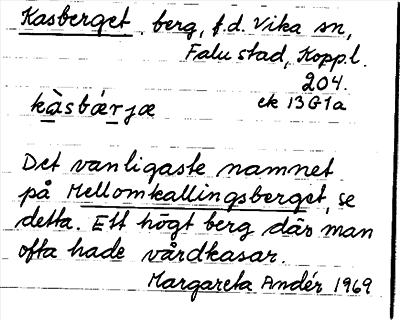 Kasberget, berg, f.d. Vika sn,
Falu stad, Kopp.l.
204.
ek 13G1a
kàsbǽrjæ
Det vanligaste namnet
på Mellomkallingsberget, se
detta. Ett högt berg där man
ofta hade vårdkasar.
Margareta Andér 1969